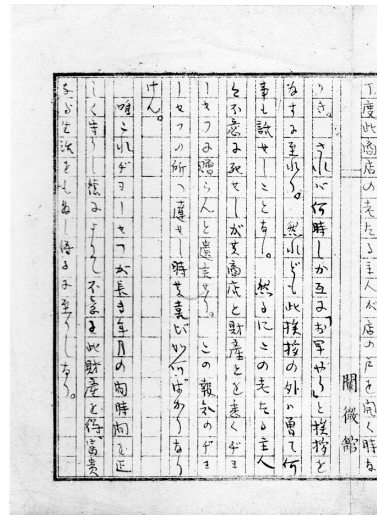 丁度此商店の老たる主人が店の戸を開く時な
闡微館
りき。されば何時しか互に「お早やう」と挨拶を
なすに至れり。然れども此挨拶の外は曽て何
事も談せしことなし。然るにこの老たる主人
は不意に死せしが其商店と財産とを悉くヂヨ
ーセフに贈らんと遺言せり。この報知のヂヨ
ーセフの所へ達せし時其喜び如何ばかりなり
けん。
唯これヂヨーセフが長き年月の間時間を正
しく守りし徳によりて不意に此財産を得、富貴
なる生活をも為し得るに至りしなり。